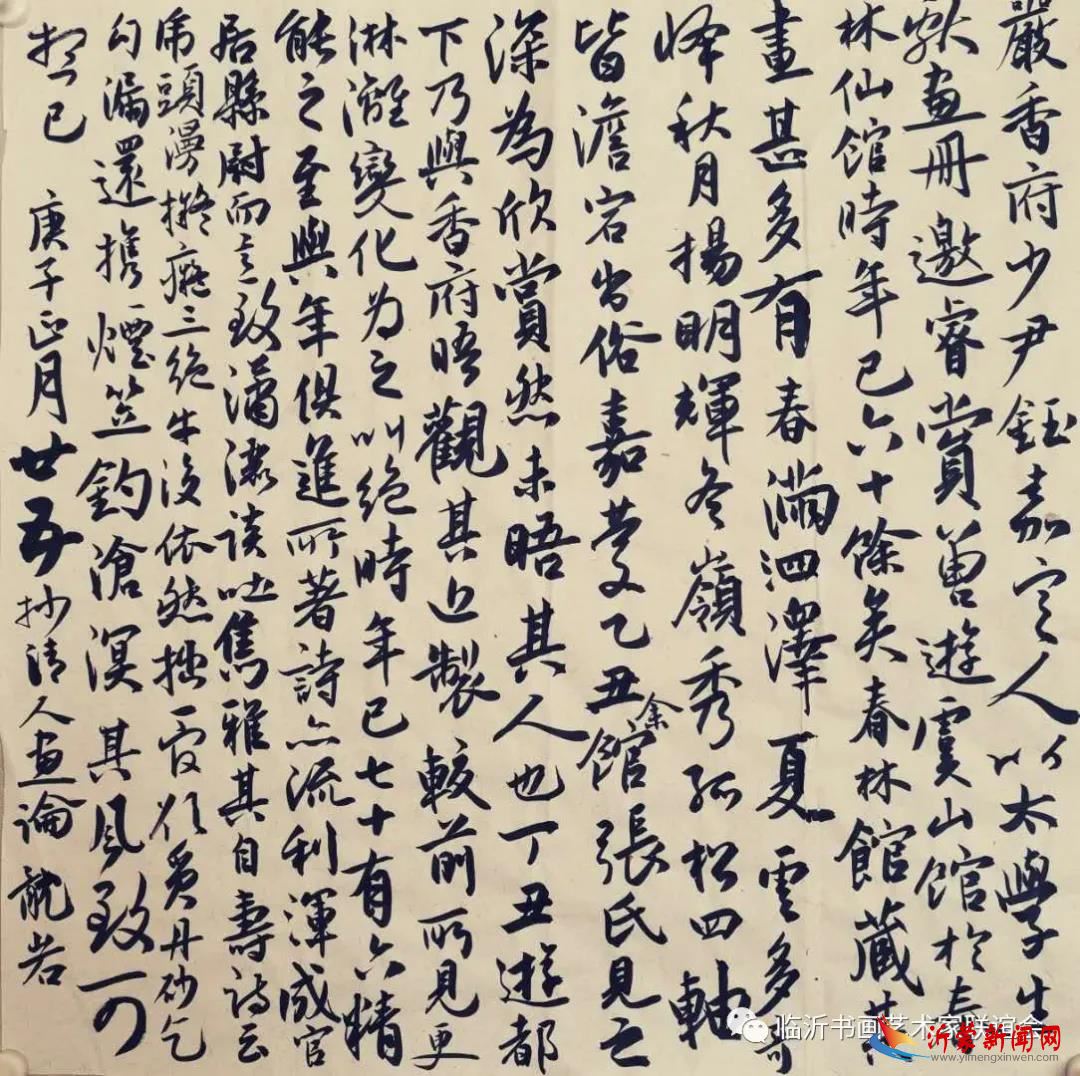 嚴香府少尹鈺嘉定人以太學生
獻畫冊邀睿賞曾遊虞山館於春
林仙館時年已六十餘矣春林館藏其
畫甚多有春滿泗澤夏雲多奇
峰秋月揚明輝冬嶺秀孤松四軸
皆澹宕出俗嘉慶乙丑余館張氏見之
深為欣賞然未晤其人也丁丑遊都
下乃與香府晤觀其近製較前所見更
淋漓變化为之叫絕時年已七十有六精
能之至與年俱進所著詩亦流利渾成官
居縣尉而言致瀟灑談吐雋雅其自壽詩云
虎頭漫擬癡三絕牛後依然拙一官欲覓丹砂乞
勾漏還攜煙笠釣滄溟其風致可
想已 庚子正月廿五抄清人畫論
临沂书画艺术家联谊会
沂蒙新闻网
www.yimengxinwen.com